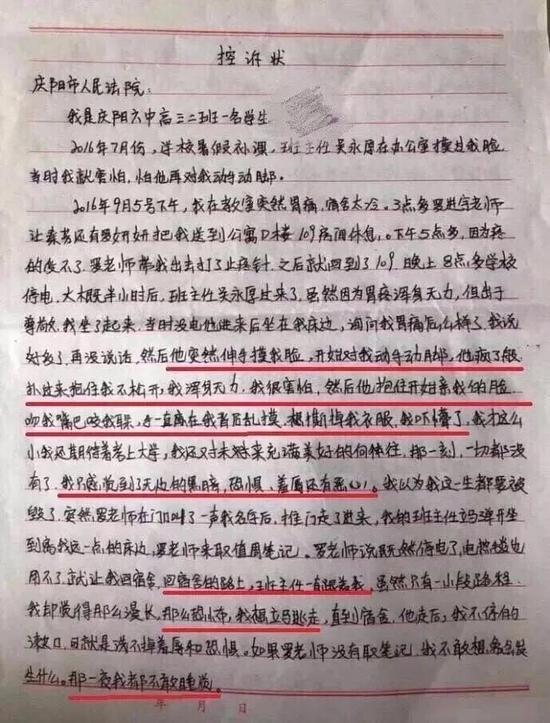 控诉状
庆阳市人民法院:
我是庆阳六中高三二班一名学生
2016年7月份,学校暑假补课,班主任吴永厚在办公室摸过我脸,
当时我就害怕,怕他再对我动手动脚。
2016年9月5号下午,我在教室突然胃痛,宿舍太冷。3点多罗进宇老师
让秦芳还有罗妍妍把我送到公寓D楼109房间休息。下午5点多,因为疼
的受不了。罗老师带我出去打了止疼针,之后就回到了109 晚上8点多学校
停电,大概半小时后,班主任吴永厚过来了,虽然因为胃疼浑身无力,但出于
尊敬,我坐了起来,当时没电他进来后坐在我床边,询问我胃痛怎么样了,我说
好多了,再没说话,然后他突然伸手摸我脸,开始对我动手动脚,他疯了般
扑过来抱住我不松开,我浑身无力,我很害怕,然后他抱住开始亲我的脸
吻我嘴巴咬我耳朵,手一直在我背后乱摸,想撕掉我衣服,我吓懵了,我才这么
小我还期待着考上大学,我还对未来充满美好的向往,那一刻,一切都没
有了,我只感觉到了无边的黑暗,恐惧、羞辱还有恶心。我以为我这一生都要被
毁了,突然罗老师在门口叫了一声我名后,推门走了进来,我的班主任立马弹开坐
到离我远一点的床边,罗老师来取值周笔记。罗老师说既然停电了,电热毯也
用不了,就让我回宿舍,回宿舍的路上,班主任一直跟着我,虽然只有一小段路程
我却觉得那么漫长,那么恐怖,我想立马逃走,直到宿舍,他走后,我不停的
漱口,可就是洗不掉羞辱和恐惧。如果罗老师没有取笔记,我不敢想象会发
生什么。那一夜我都不敢睡觉。
年 月 日